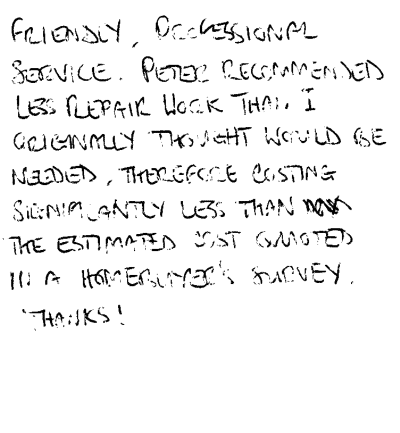 FRIENDLY, PROFESSIONAL
SERVICE. PETER RECOMMENDED
LESS REPAIR WORK THAN I
ORIGINALLY THOUGHT WOULD BE
NEEDED, THEREFORE COSTING
SIGNIFICANTLY LESS THAN
THE ESTIMATED COST QUOTED
IN A HOMEBUYER'S SURVEY.
THANKS!